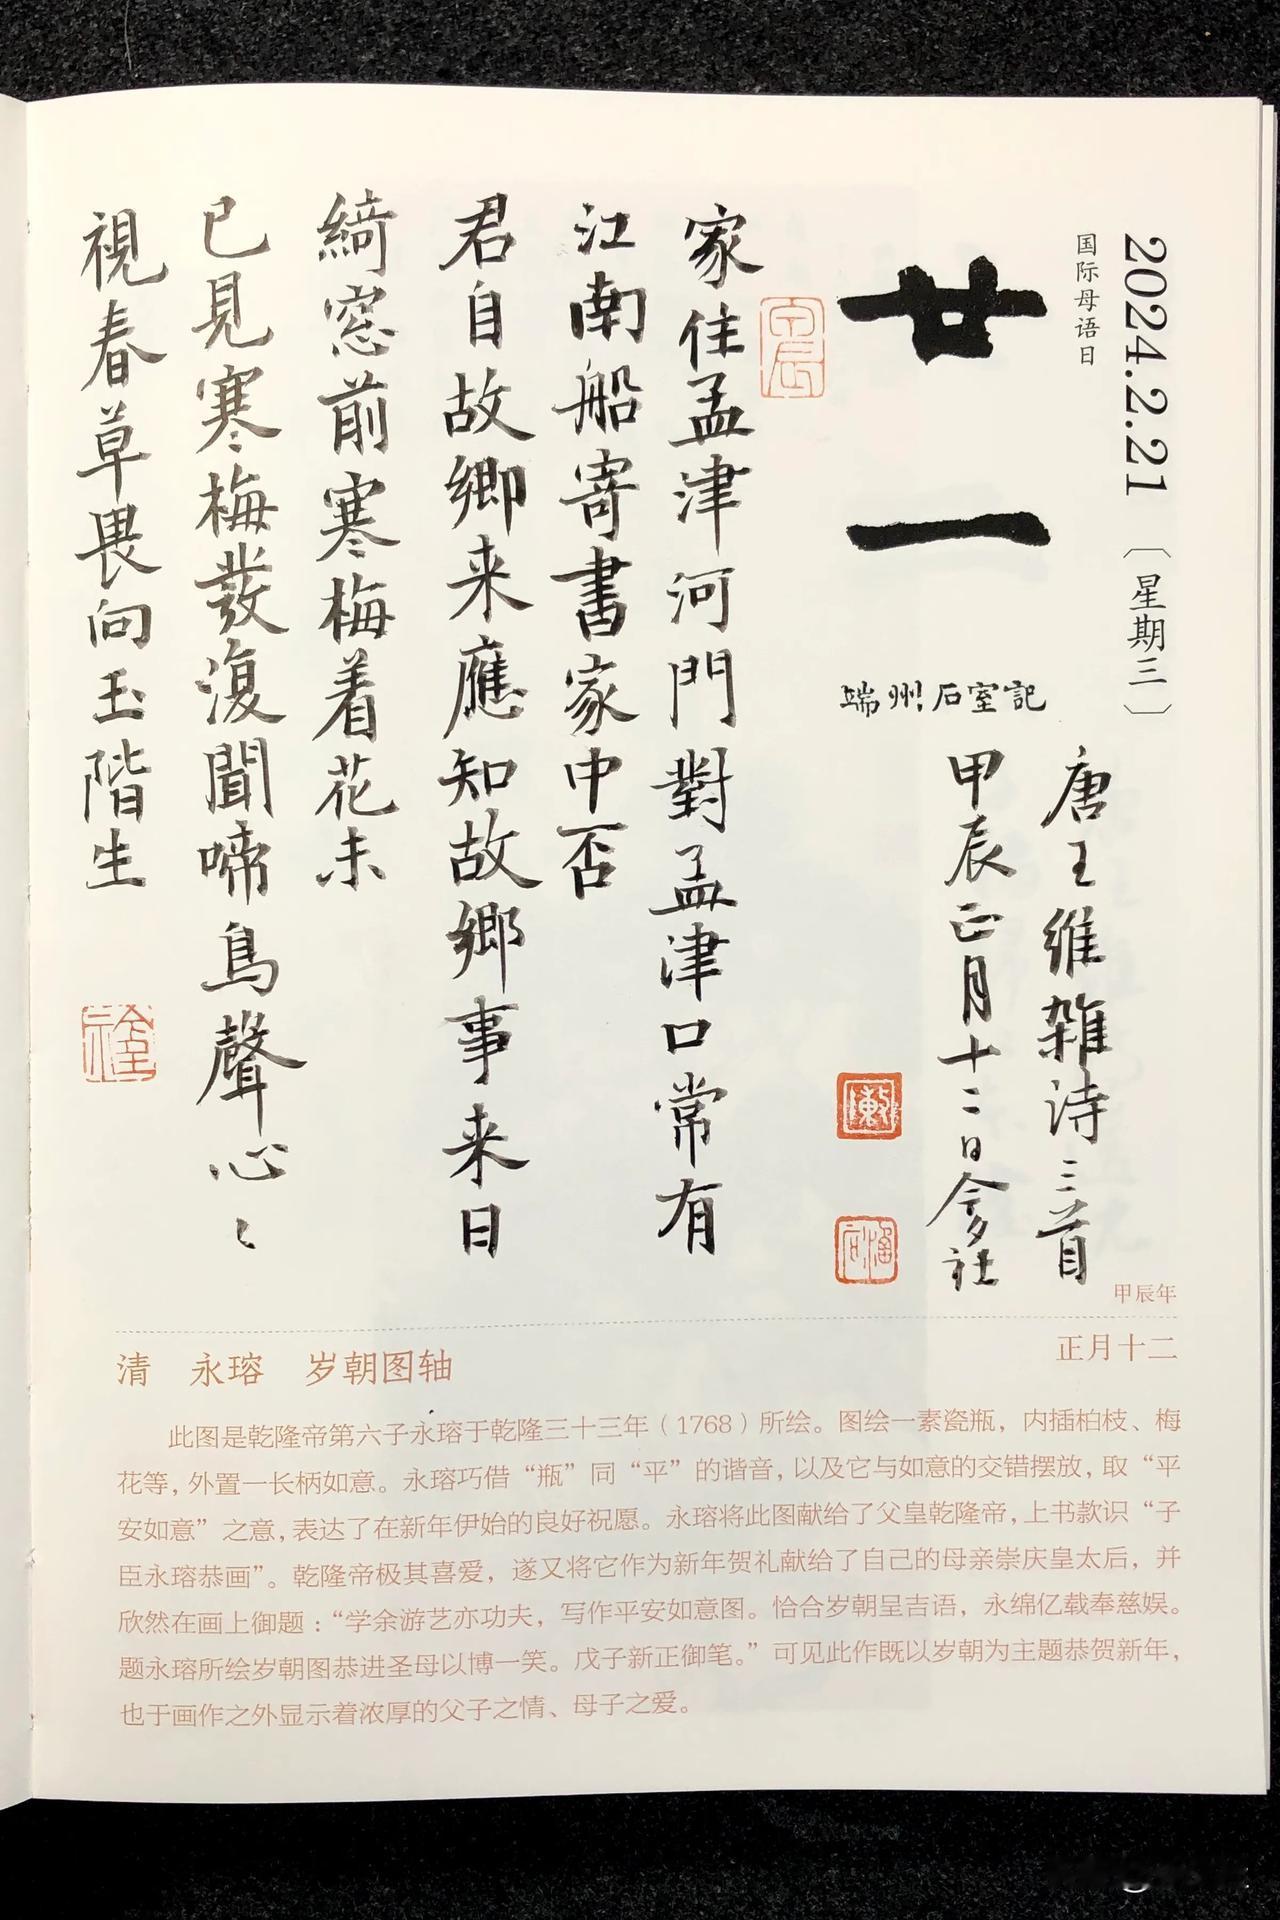 2024.2.21〔星期三〕
国际母语日
廿一
端州石室記
家住孟津河門對孟津口常有
江南船寄書家中否
君自故鄉来應知故鄉事来日
綺窓前寒梅着花未
已見寒梅發復聞啼鳥聲心〻
視春草畏向玉階生
唐王維雜诗三首
甲辰正月十二日
甲辰年
正月十二
清 永瑢 岁朝图轴
此图是乾隆帝第六子永瑢于乾隆三十三年（1768）所绘。图绘一素瓷瓶，内插柏枝、梅
花等，外置一长柄如意。永瑢巧借“瓶”同“平”的谐音，以及它与如意的交错摆放，取“平
安如意”之意，表达了在新年伊始的良好祝愿。永瑢将此图献给了父皇乾隆帝，上书款识“子
臣永瑢恭画”。乾隆帝极其喜爱，遂又将它作为新年贺礼献给了自己的母亲崇庆皇太后，并
欣然在画上御题：“学余游艺亦功夫，写作平安如意图。恰合岁朝呈吉语，永绵亿载奉慈娱。
题永瑢所绘岁朝图恭进圣母以博一笑。戊子新正御笔。”可见此作既以岁朝为主题恭贺新年，
也于画作之外显示着浓厚的父子之情、母子之爱。